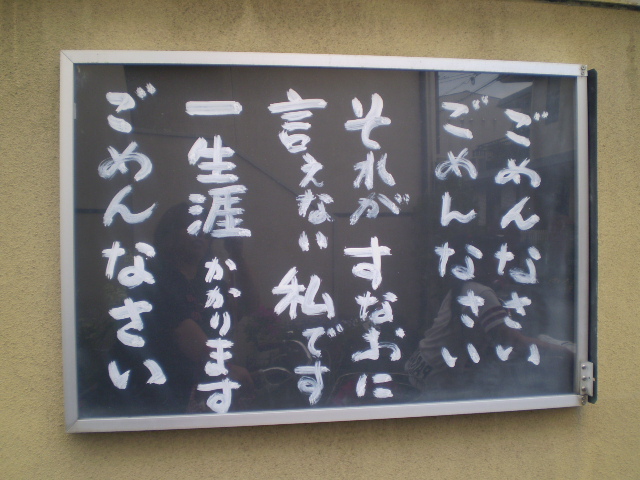 ごめんなさい
ごめんなさい
それがすなおに
言えない私です
一生涯かかります
ごめんなさい